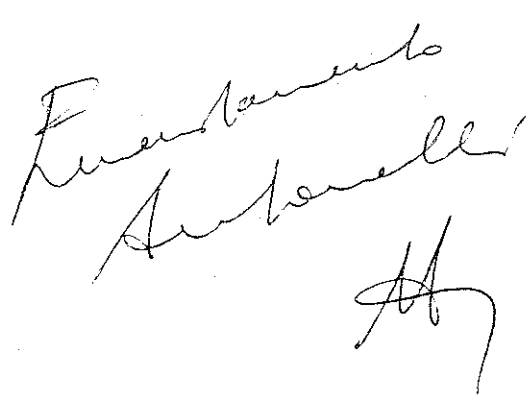 Emendamento
Antonelli